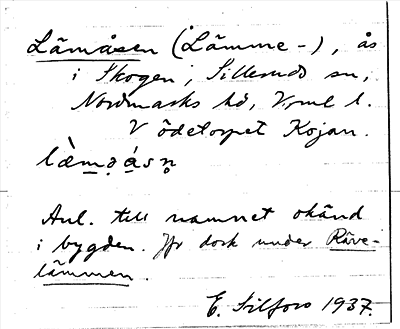 Lämåsen (Lämme-), ås
i Skogen, Silleruds sn,
Nordmarks hd, Vrml l.
V ödetorpet Kojan.
lä̀mǝásn̥
Anl. till namnet okänd
i bygden. Jfr dock under Räve-
lämmen.
E. Silfors 1937.